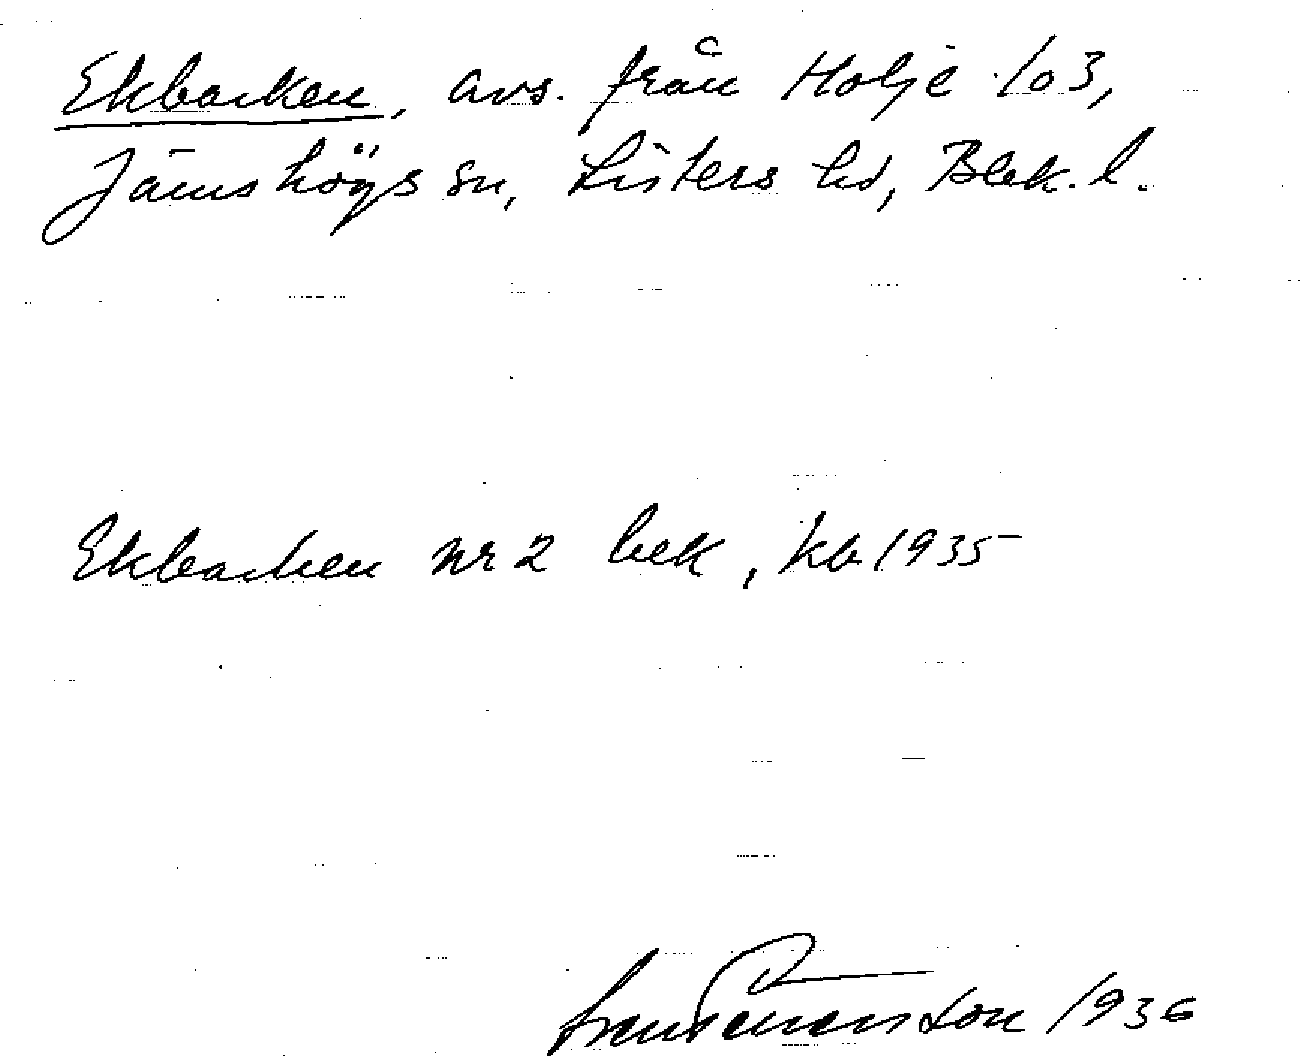 Ekbacken, avs. från Holje 103,
Jämshögs sn, Listers hd, Blek. l.
Ekbacken nr 2 bek, kb 1935
1936